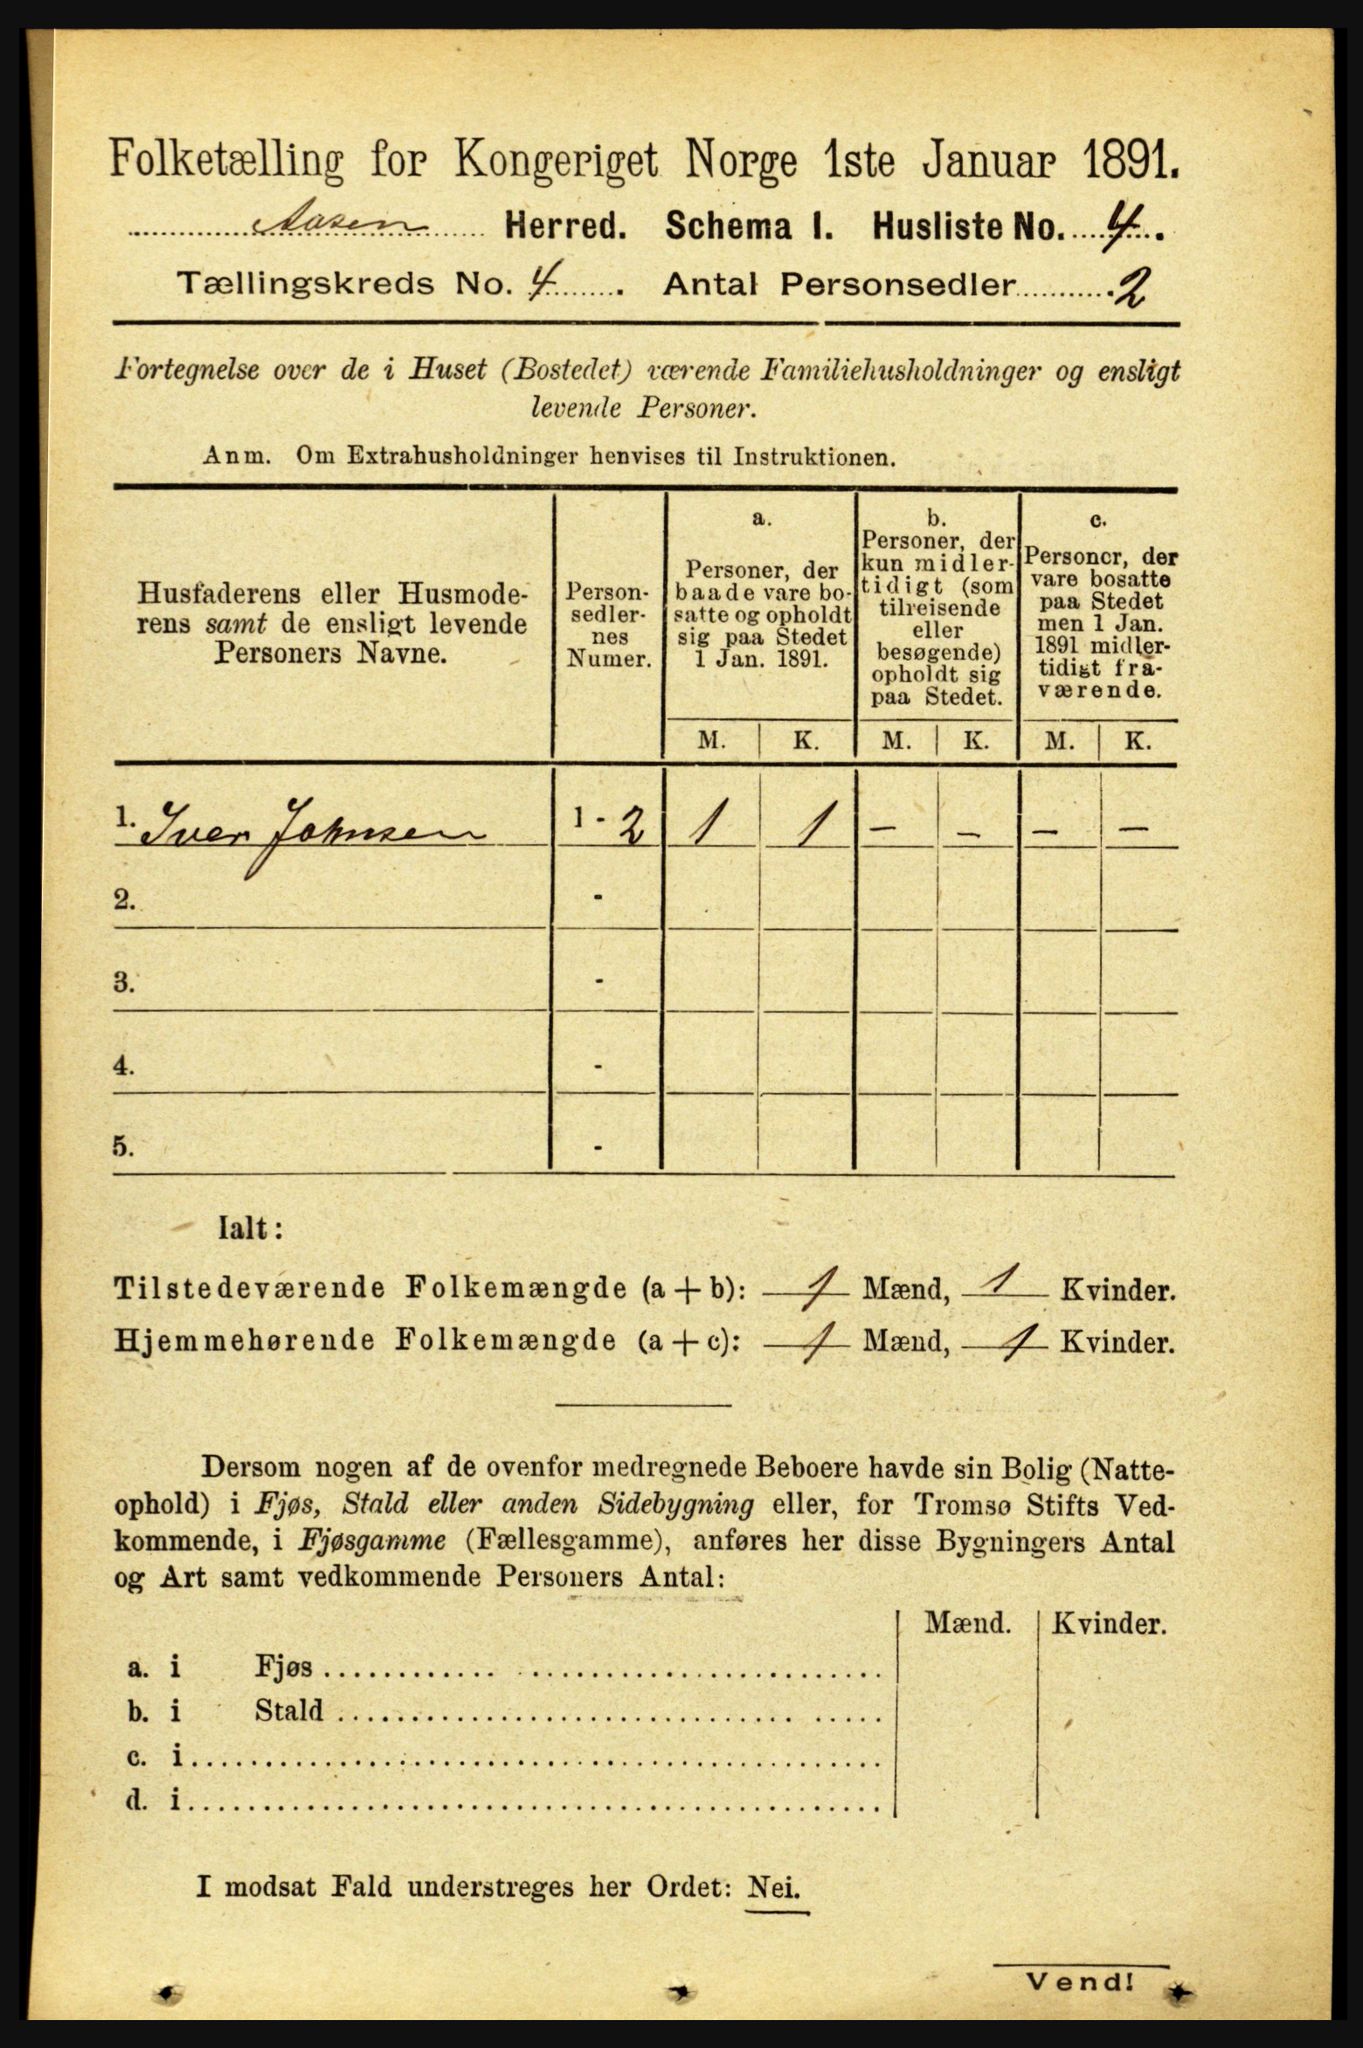 Folketælling for Kongeriget Norge 1ste Januar 1891.
Aasen Herred. Schema I. Husliste No. 4.
Tællingskreds No. 4. Antal Personsedler 2
Fortegnelse over de i Huset (Bostedet) værende Familiehusholdninger og ensligt
levende Personer.
Anm. Om Extrahusholdninger henvises til Instruktionen.
Husfaderens eller Husmode-
rens samt de ensligt levende
Personers Navne.
Person-
sedler-
nes
Numer.
a.
Personer, der
baade vare bo-
satte og opholdt
sig paa Stedet
1 Jan. 1891.
b.
Personer, der
kun midler-
tidigt (som
tilreisende
eller
besøgende)
opholdt sig
paa Stedet.
c.
Personer, der
vare bosatte
paa Stedet
men 1 Jan.
1891 midler-
tidigt fra-
værende.
M. K. M. K. M. K.
1. Iver Johnsen 1 - 2 1 1 – – – –
2. -
3. -
4. -
5. -
Ialt:
Tilstedeværende Folkemængde (a + b): 1 Mænd, 1 Kvinder.
Hjemmehørende Folkemængde (a + c): 1 Mænd, 1 Kvinder.
Dersom nogen af de ovenfor medregnede Beboere havde sin Bolig (Natte-
ophold) i Fjøs, Stald eller anden Sidebygning eller, for Tromsø Stifts Ved-
kommende, i Fjøsgamme (Fællesgamme), anføres her disse Bygningers Antal
og Art samt vedkommende Personers Antal:
Mænd. Kvinder.
a. i Fjøs
b. i Stald
c. i
d. i
I modsat Fald understreges her Ordet: Nei.
Vend!